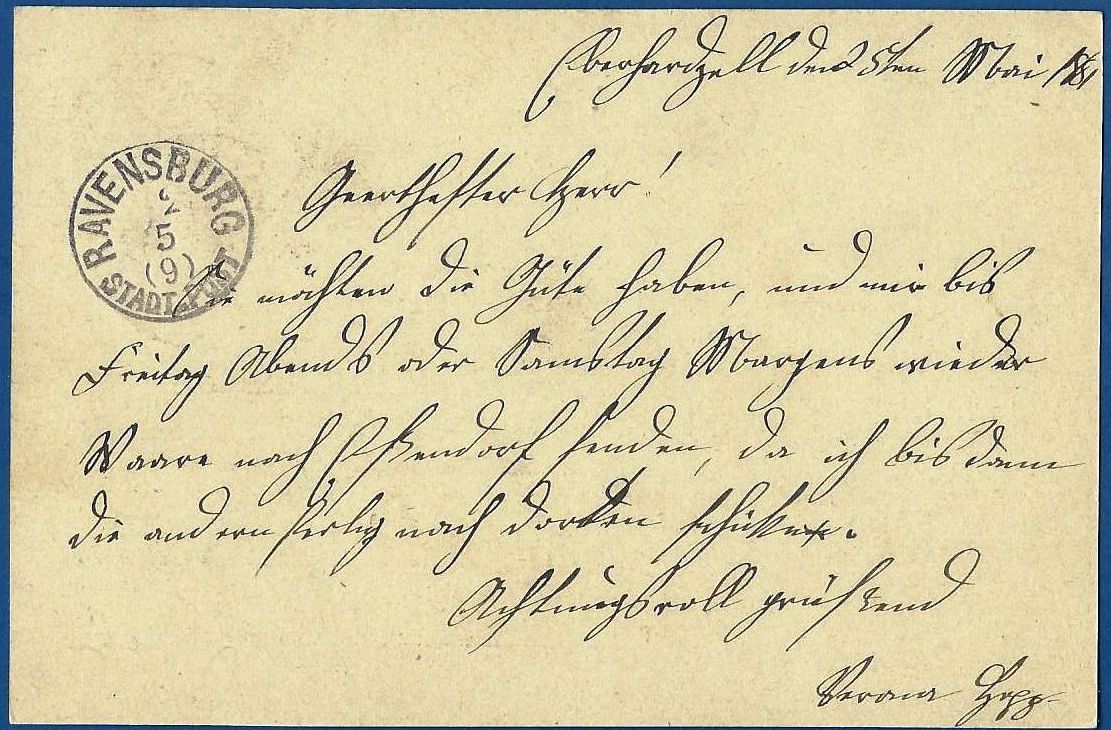 Eberhardzell den 5ten Mai 1881
Geerthester Herr!
RAVENSBURG
5
(9)
STADT-POST
Sie möchten die Güte haben, und mir bis
Freitag Abends oder Samstag Morgens wieder
Waare nach Essendorf senden, da ich bis dann
die andern fertig nach dorten schicke.
Achtungsvoll grüssend
Verena